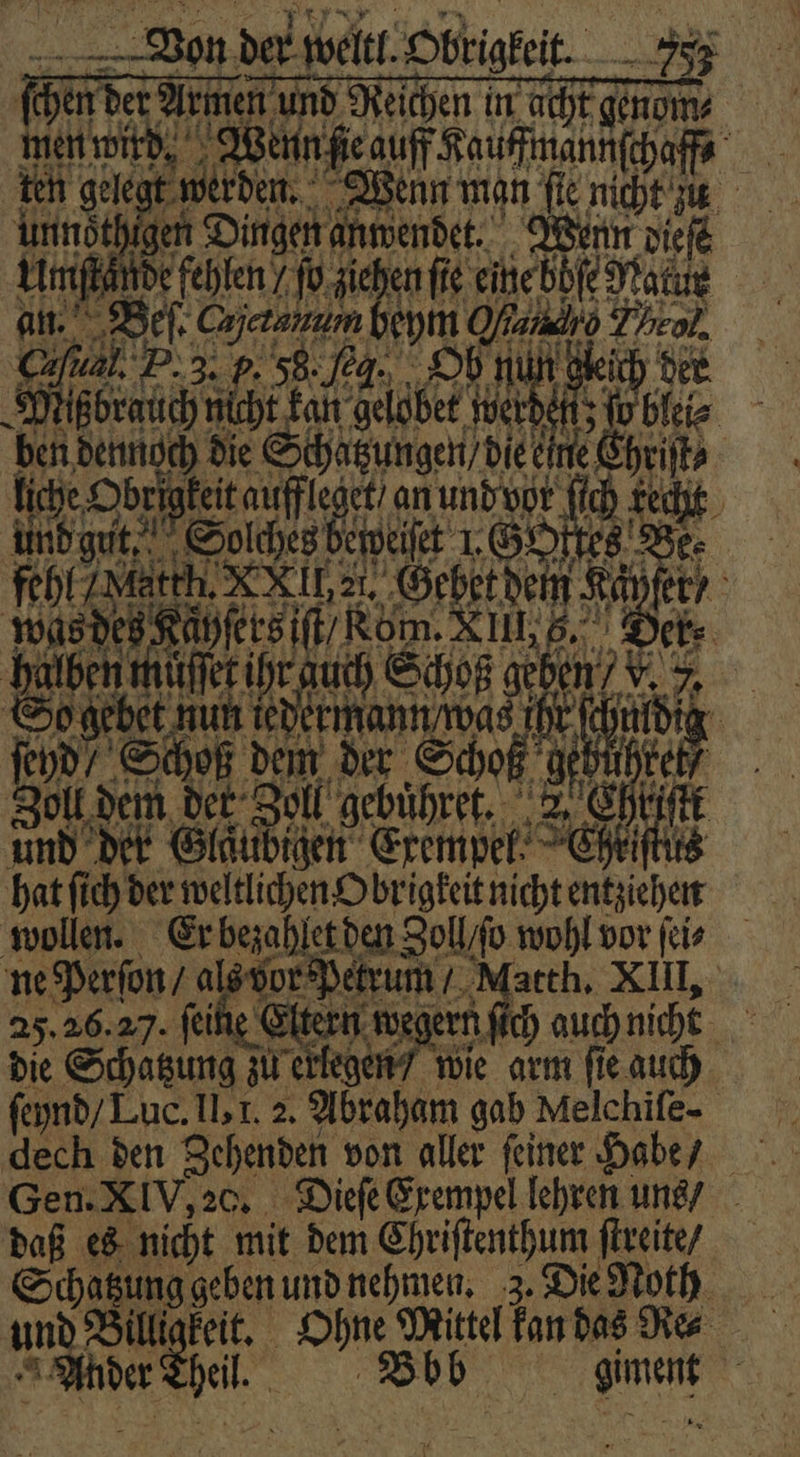 Von der weltl. Obrigkeit. 753
ſchen der Armen und Reichen in acht genom⸗
men wird. Wenn ſie auff Kauffmannſchaff⸗
ten gelegt werden. Wenn man ſie nicht zu
unnoͤthigen Dingen anwendet. Wenn dieſe
Umſtaͤnde fehlen / ſo ziehen ſie eine boͤſe Natur
an. Beſ. Cajetanum beym Oſiandro Theol.
Caſual. P. 3. p. 58. ſeq. Ob nun gleich der
Mißbrauch nicht kan gelobet werden; ſo blei⸗
ben dennoch die Schatzungen / die eine Chriſt⸗
liche Obrigkeit auffleget / an und vor ſich recht
und gut. Solches beweiſet 1. GOttes Be⸗
fehl / Matth. XXII, 21. Gebet dem Kaͤyſer /
was des Kaͤyſers iſt / Rom. XIII, 6. Der⸗
halben muͤſſet ihr auch Schoß geben / v. 7.
So gebet nun iedermann / was ihr ſchuldig
ſeyd / Schoß dem der Schoß gebuͤhret /
Zoll dem der Zoll gebuͤhret. 2. Chriſti
und der Glaͤubigen Exempel. Chriſtus
hat ſich der weltlichen Obrigkeit nicht entziehen
wollen. Er bezahlet den Zoll / ſo wohl vor ſei⸗
ne Perſon / als vor Petrum / Matth. XIII,
25. 26. 27. ſeine Eltern wegern ſich auch nicht
die Schatzung zu erlegen / wie arm ſie auch
ſeynd / Luc. II, 1. 2. Abraham gab Melchiſe-
dech den Zehenden von aller ſeiner Habe /
Gen. XIV, 20. Dieſe Exempel lehren uns /
daß es nicht mit dem Chriſtenthum ſtreite /
Schatzung geben und nehmen. 3. Die Noth
und Billigkeit. Ohne Mittel kan das Re⸗
Ander Theil. Bbb giment